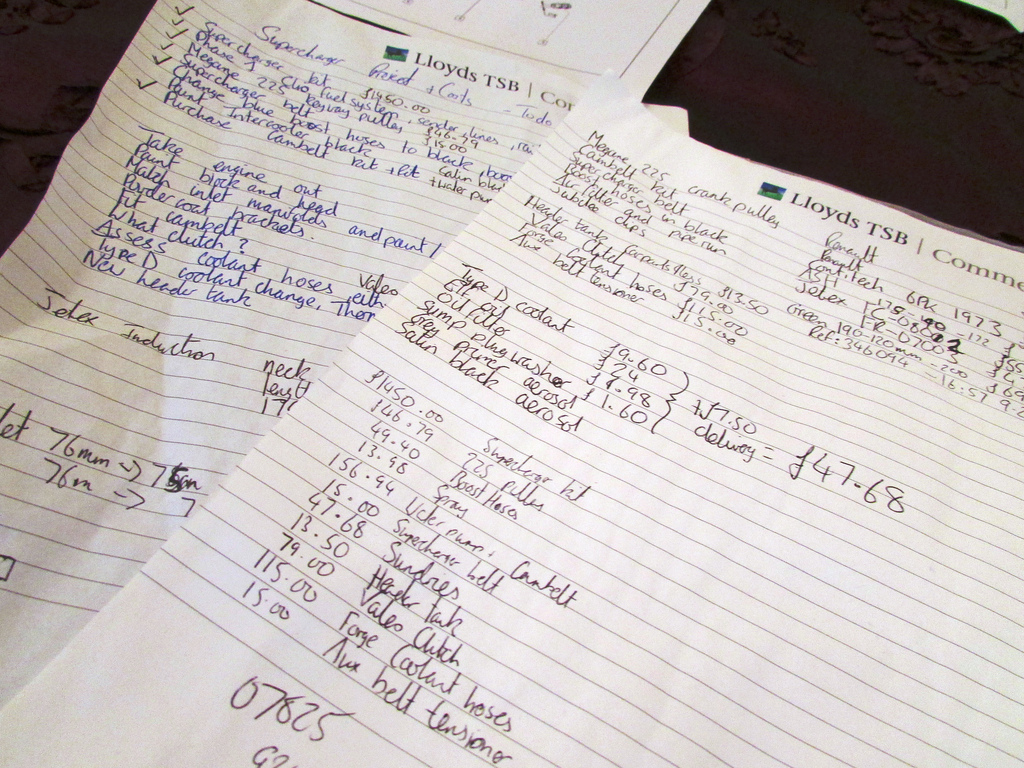 Lloyds TSB | Com
Supercharger Project + Costs - To do
Supercharger kit £1450.00
Phase 1 Clio fuel system, sender, lines,
Megane 225 keyway pulley £46.79
Supercharger belt £15.00
Change blue boost hoses to black,
Paint Intercooler black
Purchase Cambelt kit +
Take engine out
Paint block and head
Match inlet manifolds and paint /
Powder coat brackets.
Fit cambelt
What clutch? Valeo
Assess coolant hoses,
Type D coolant change,
New header tank
Jetex Induction
neck
76mm -> 75
76m -> 7
Lloyds TSB | Comme
Megane 225 crank pulley Renault
Cambelt kit
Supercharger belt Contitech 6PK 1973
Boost hoses in black
Air filter and pipe run Jetex
Jubilee clips
Header tank carparts4less £13.50
Valeo Clutch £79.00
Forge Coolant hoses £115.00
Aux belt tensioner £15.00
Type D coolant £9.60
Elf oil £24
Oil filter
Sump plug washer £4.98
Grey primer aerosol £1.60
Satin black aerosol
+£7.50
delivery = £47.68
£1450.00 Supercharger kit
£46.79 225 pulley
49.40 Boost Hoses
13.98 Spray
156.94 Water pump + Cambelt
15.00 Supercharger belt
47.68 Sundries
13.50 Header Tank
79.00 Valeo Clutch
115.00 Forge Coolant hoses
15.00 Aux belt tensioner
07825